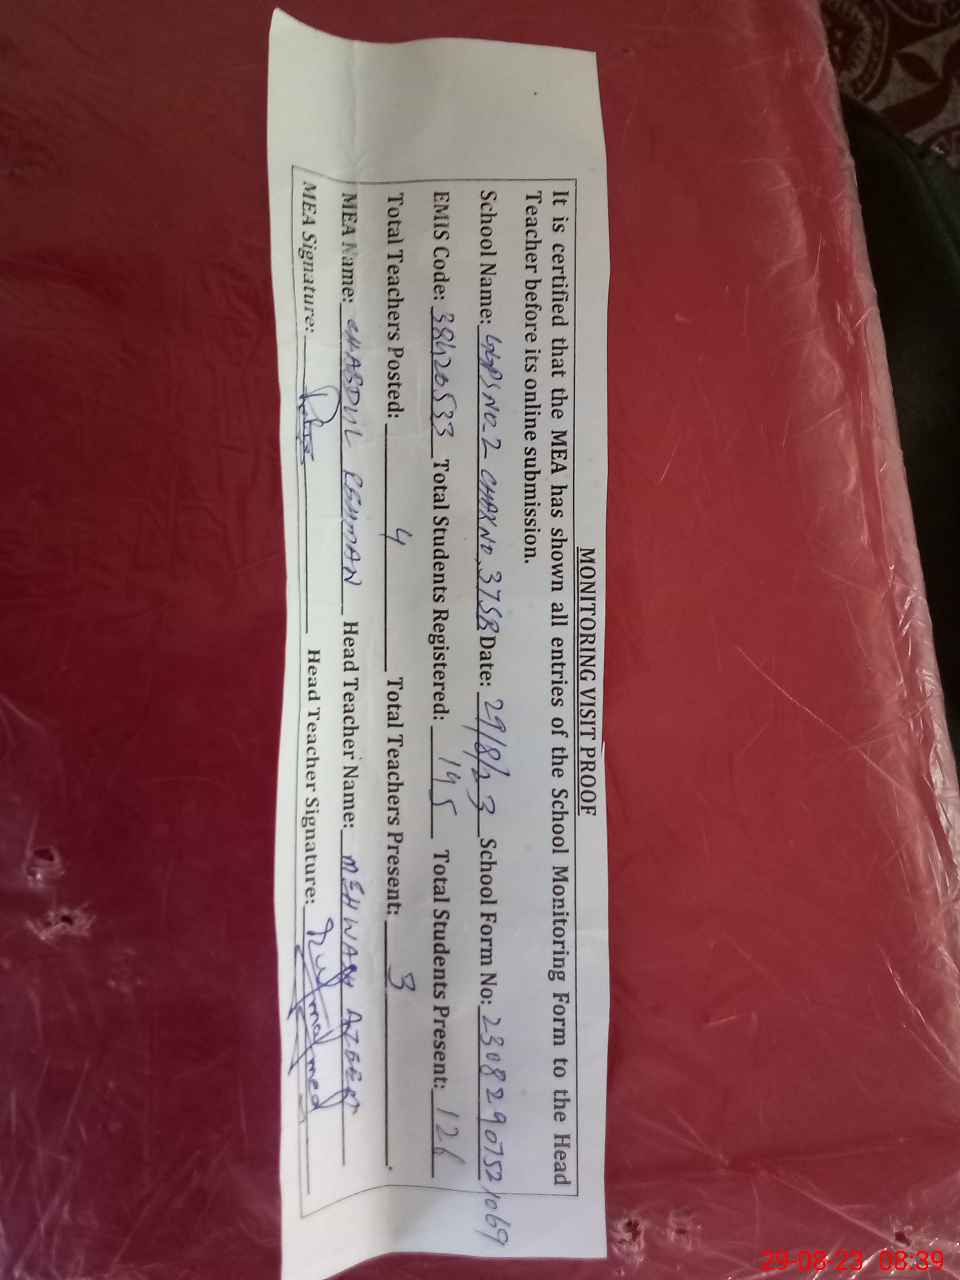 MONITORING VISIT PROOF
It is certified that the MEA has shown all entries of the School Monitoring Form to the Head
Teacher before its online submission.
School Name: GGPS NO.2 CHAK NO. 37SB Date: 29/8/23 School Form No: 23082907521069
EMIS Code: 38420533 Total Students Registered: 145 Total Students Present: 126
Total Teachers Posted: 4 Total Teachers Present: 3.
MEA Name: CH ABDUL REHMAN Head Teacher Name:
MEA Signature: Head Teacher Signature:
29-08-23 08:39